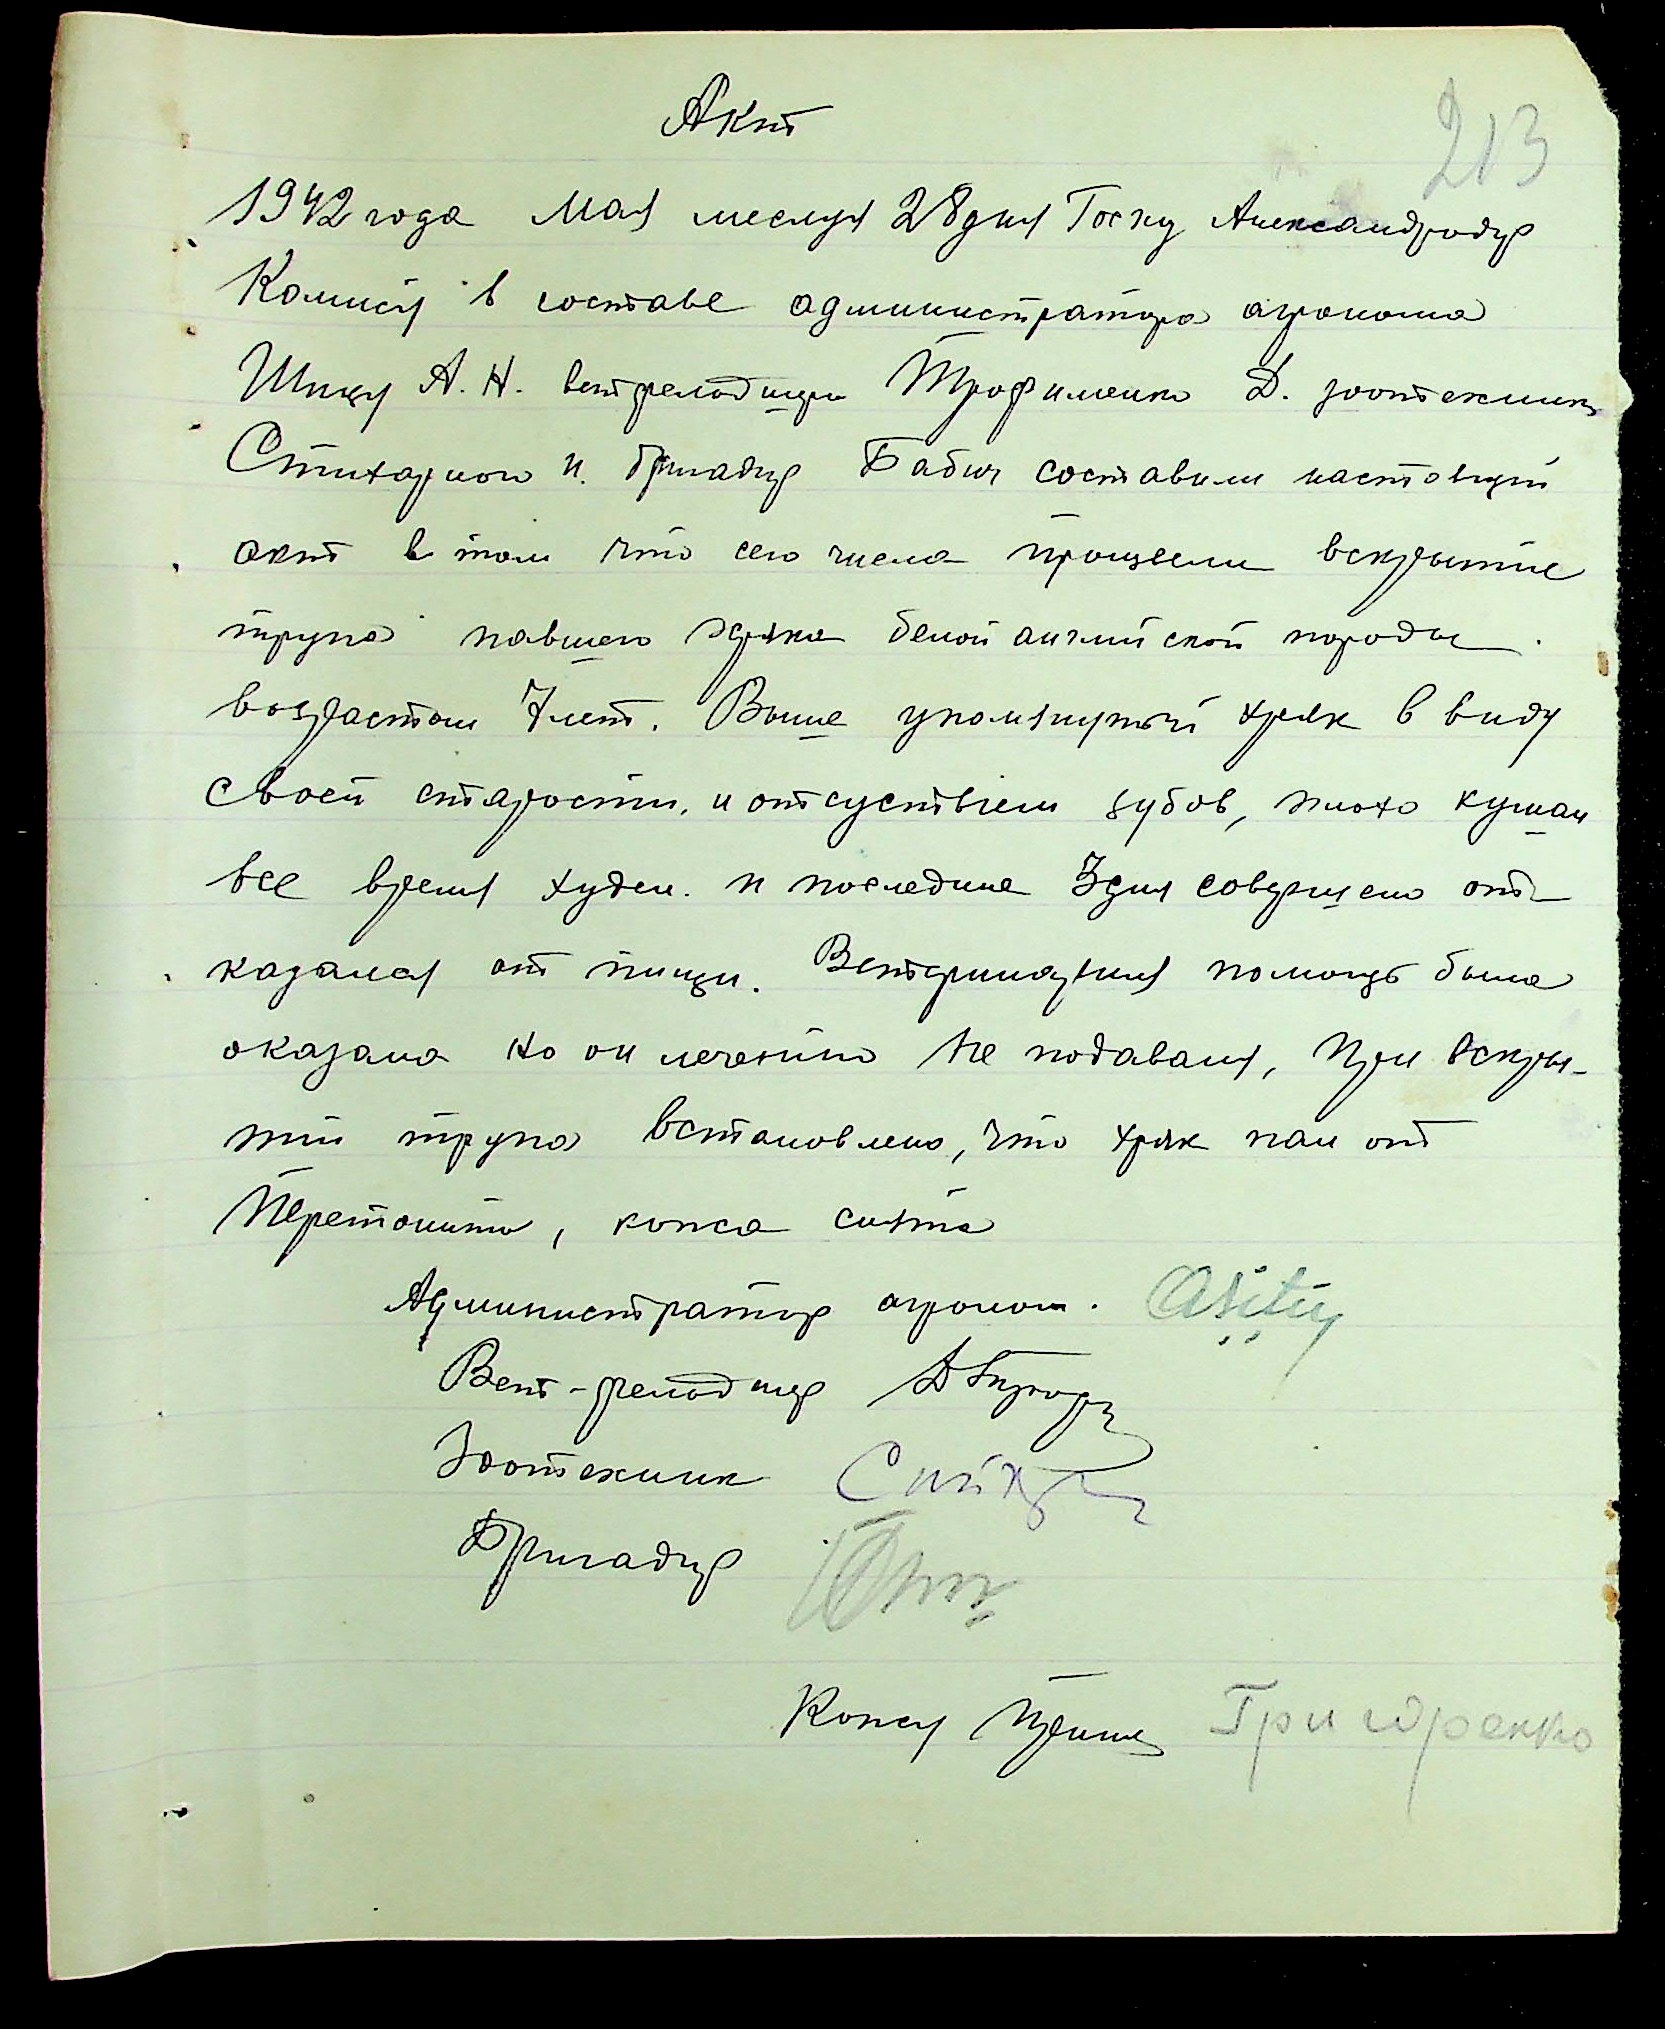 Акт
213
1942 года Мая месяця 28 дня Госху Александродар
Комисия в составе администратора агронома
Шицу А. Н. ветфельдшера Трофименко Д. зоотехника
Стихарного и бригадир Бабич составили настоящий
акт в том что сего числа произвели вскрытие
трупа павшего хряка белой английской породы.
возрастом 7 лет. Выше упомянутый хряк в виду
своей старости, и отсуствием зубов, плохо кушал
все время худел. и последние 3 дня совершено от-
казался от пищи. Ветеринарная помощь была
оказана но он лечению не подавался, При вскры-
тии трупа встановлено, что хряк пал от
Перетонита, кожа снята
Администратор агроном.
Вет-фельдшер
Зоотехник
Бригадир
Кожу принял Григоренко